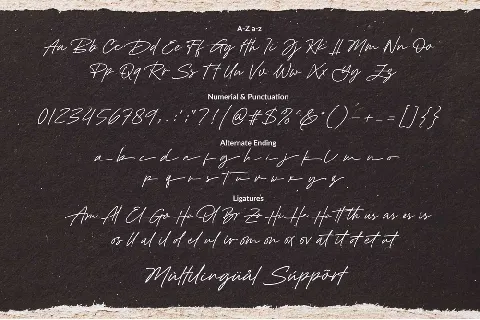 A-Z a-z
Aa Bb Cc Dd Ee Ff Gg Hh Ii Jj Kk Ll Mm Nn Oo
Pp Qq Rr Ss Tt Uu Vv Ww Xx Yy Zz
Numerial & Punctuation
0123456789,.:;"?!/(@#$%^&*()-+_=[]{}
Alternate Ending
a b c d e f g h i j k l m n o
p q r s t u v w x y z
Ligatures
os ll al il el ul ir om on ox ov at it ot et ut
Multilingüål Süppört